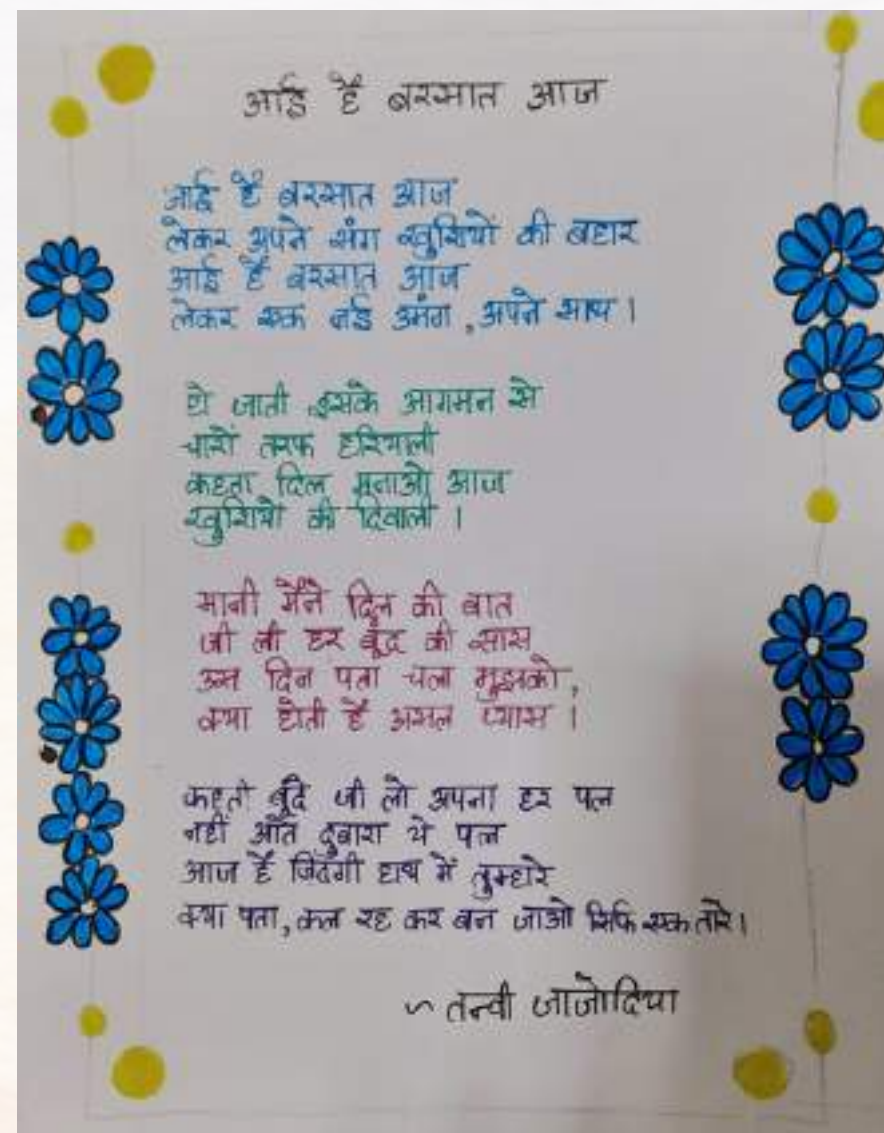 आई है बरसात आज
आई है बरसात आज
लेकर अपने संग खुशियों की बहार
आई है बरसात आज
लेकर एक नई उमंग, अपने साथ।
हो जाती इसके आगमन से
चारों तरफ हरियाली
कहता दिल मनाओ आज
खुशियों की दिवाली।
मानी मैंने दिल की बात
जी ली हर बूंद की सास
उस दिन पता चला मुझको,
क्या होती है असल प्यास।
कहती बूंदे जी लो अपना हर पल
नहीं आते दुबारा ये पल
आज है जिंदगी हाथ में तुम्हारे
क्या पता, कल रह कर बन जाओ सिर्फ एक तारे।
~ तन्वी जाजोदिया